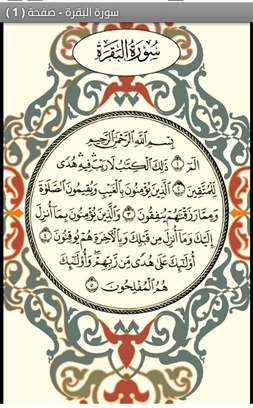 سورة البقرة - صفحة ( 1 )
سُورَةُ البَقَرَةِ
بِسْمِ اللَّهِ الرَّحْمَٰنِ الرَّحِيمِ
الٓمٓ ١ ذَٰلِكَ الْكِتَٰبُ لَا رَيْبَ ۛ فِيهِ ۛ هُدًى
لِّلْمُتَّقِينَ ٢ الَّذِينَ يُؤْمِنُونَ بِالْغَيْبِ وَيُقِيمُونَ الصَّلَوٰةَ
وَمِمَّا رَزَقْنَٰهُمْ يُنفِقُونَ ٣ وَالَّذِينَ يُؤْمِنُونَ بِمَآ أُنزِلَ
إِلَيْكَ وَمَآ أُنزِلَ مِن قَبْلِكَ وَبِالْءَاخِرَةِ هُمْ يُوقِنُونَ ٤
أُو۟لَٰٓئِكَ عَلَىٰ هُدًى مِّن رَّبِّهِمْ ۖ وَأُو۟لَٰٓئِكَ
هُمُ الْمُفْلِحُونَ ٥